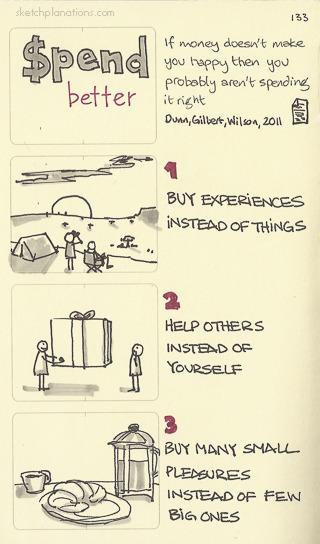 sketchplanations.com
133
$pend
better
If money doesn't make
you happy then you
probably aren't spending
it right
Dunn, Gilbert, Wilson, 2011
1
BUY EXPERIENCES
INSTEAD OF THINGS
2
HELP OTHERS
INSTEAD OF
YOURSELF
3
BUY MANY SMALL
PLEASURES
INSTEAD OF FEW
BIG ONES